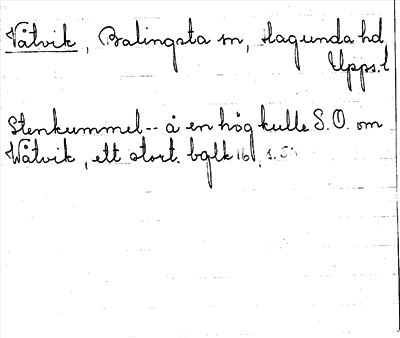 Våtvik, Balingsta sn, Hagunda hd
Upps. l
Stenkummel -- å en hög kulle S.O. om
Wåtvik, ett stort. bglk 16, s. 5